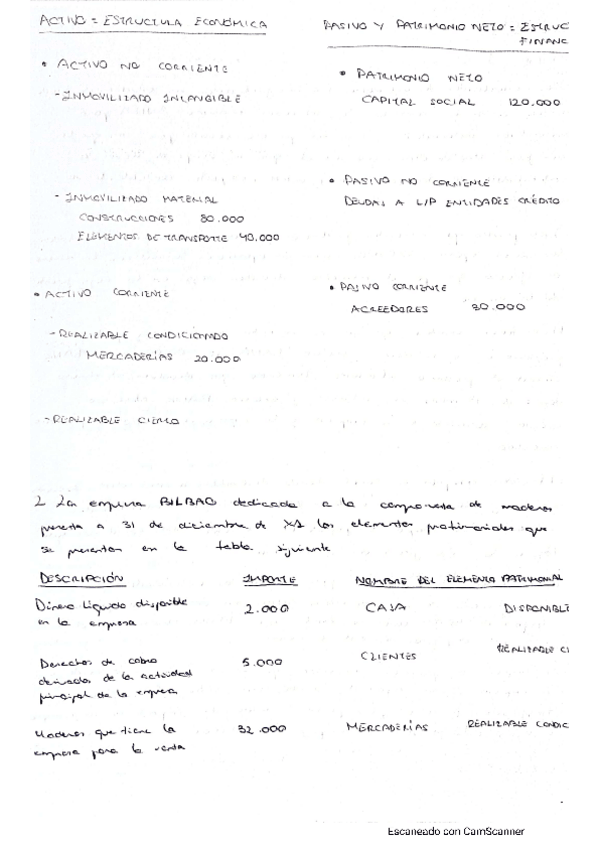 ACTIVO = ESTRUCTURA ECONÓMICA
PASIVO Y PATRIMONIO NETO = ESTRUC
FINANC
• ACTIVO NO CORRIENTE
- INMOVILIZADO INTANGIBLE
• PATRIMONIO NETO
CAPITAL SOCIAL 120.000
- INMOVILIZADO MATERIAL
CONSTRUCCIONES 80.000
ELEMENTOS DE TRANSPORTE 40.000
• PASIVO NO CORRIENTE
DEUDAS A L/P ENTIDADES CRÉDITO
• ACTIVO CORRIENTE
- REALIZABLE CONDICIONADO
MERCADERÍAS 20.000
• PASIVO CORRIENTE
ACREEDORES 20.000
- REALIZABLE CIERTO
2. La empresa BILBAO dedicada a la compraventa de maderas
presenta a 31 de diciembre de X1 los elementos patrimoniales que
se presentan en la tabla siguiente
DESCRIPCIÓN IMPORTE NOMBRE DEL ELEMENTO PATRIMONIAL
Dinero líquido disponible
en la empresa
2.000 CAJA DISPONIBLE
Derechos de cobro
derivados de la actividad
principal de la empresa
5.000 CLIENTES REALIZABLE CI
Maderas que tiene la
empresa para la venta
32.000 MERCADERÍAS REALIZABLE CONDIC
Escaneado con CamScanner